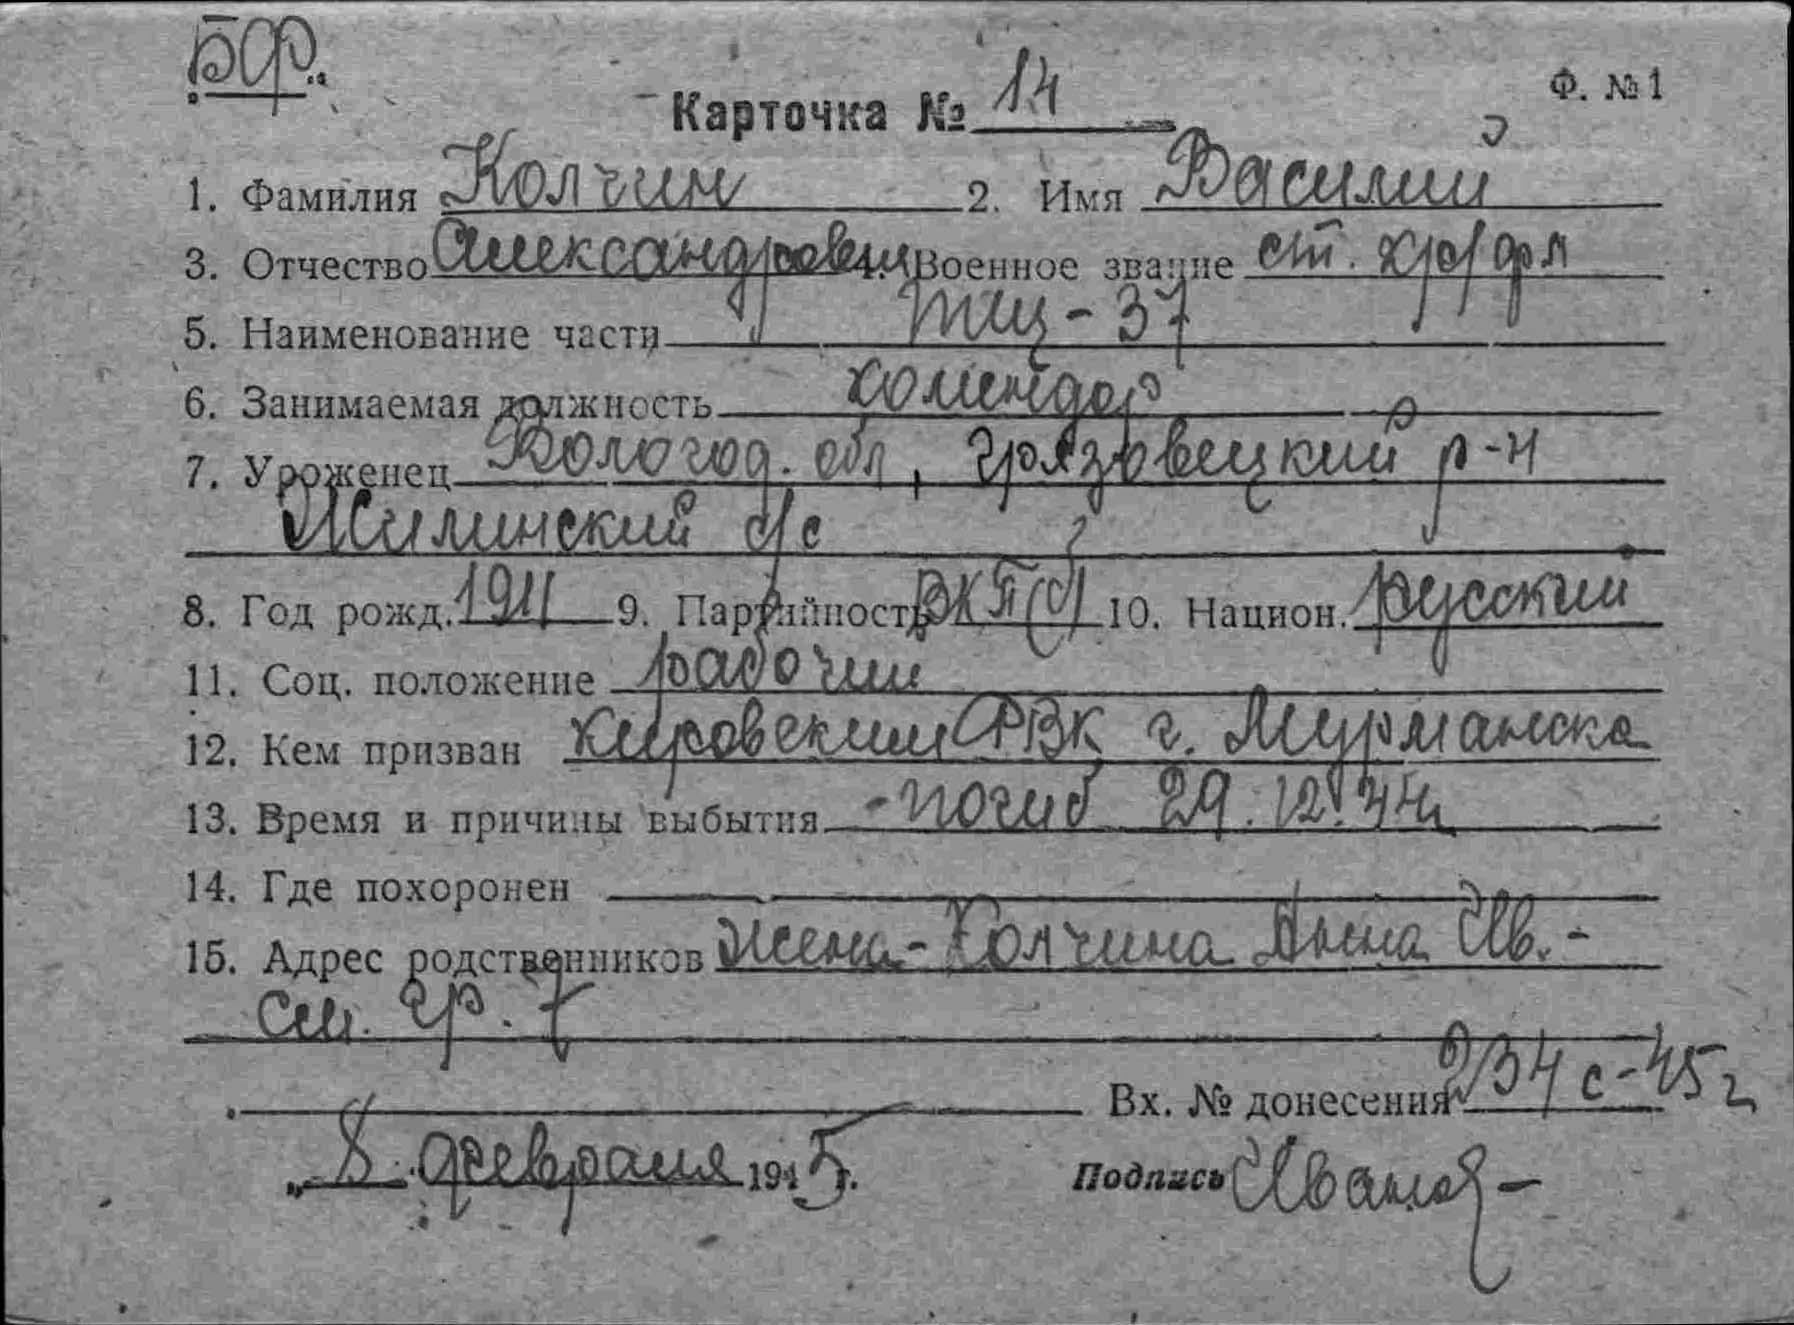 БФ.
Карточка № 14
Ф. № 1
1. Фамилия Колчин 2. Имя Василий
3. Отчество Александрович 4. Военное звание ст. кр/фл
5. Наименование части ТЩ - 37
6. Занимаемая должность комендор
7. Уроженец Вологод. обл, Грязовецкий р-н
Жилинский с/с
8. Год рожд. 1911 9. Партийность ВКП(б) 10. Национ. русский
11. Соц. положение рабочий
12. Кем призван Кировским РВК г. Мурманска
13. Время и причины выбытия - погиб 29.12.44г
14. Где похоронен
15. Адрес родственников Жена - Колчина Анна Ив. -
см. гр. 7
Вх. № донесения 234 с - 45 г
„ 8 " февраля 1945 г.
Подпись Иванов